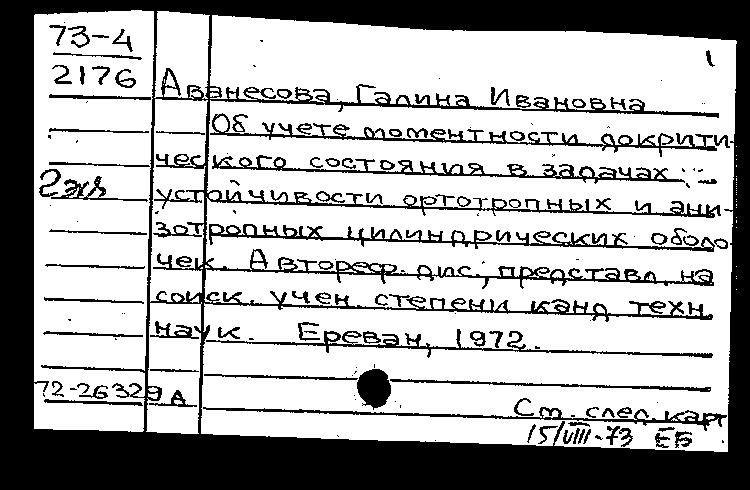 73-4
2176
1
Аванесова, Галина Ивановна
Об учете моментности докрити-
ческого состояния в задачах
2 экз
устойчивости ортотропных и ани-
зотропных цилиндрических оболо-
чек. Автореф. дис., представл. на
соиск. учен. степени канд. техн.
наук. Ереван, 1972.
72-26329 А
См. след. карт
15/VIII-73 ЕБ